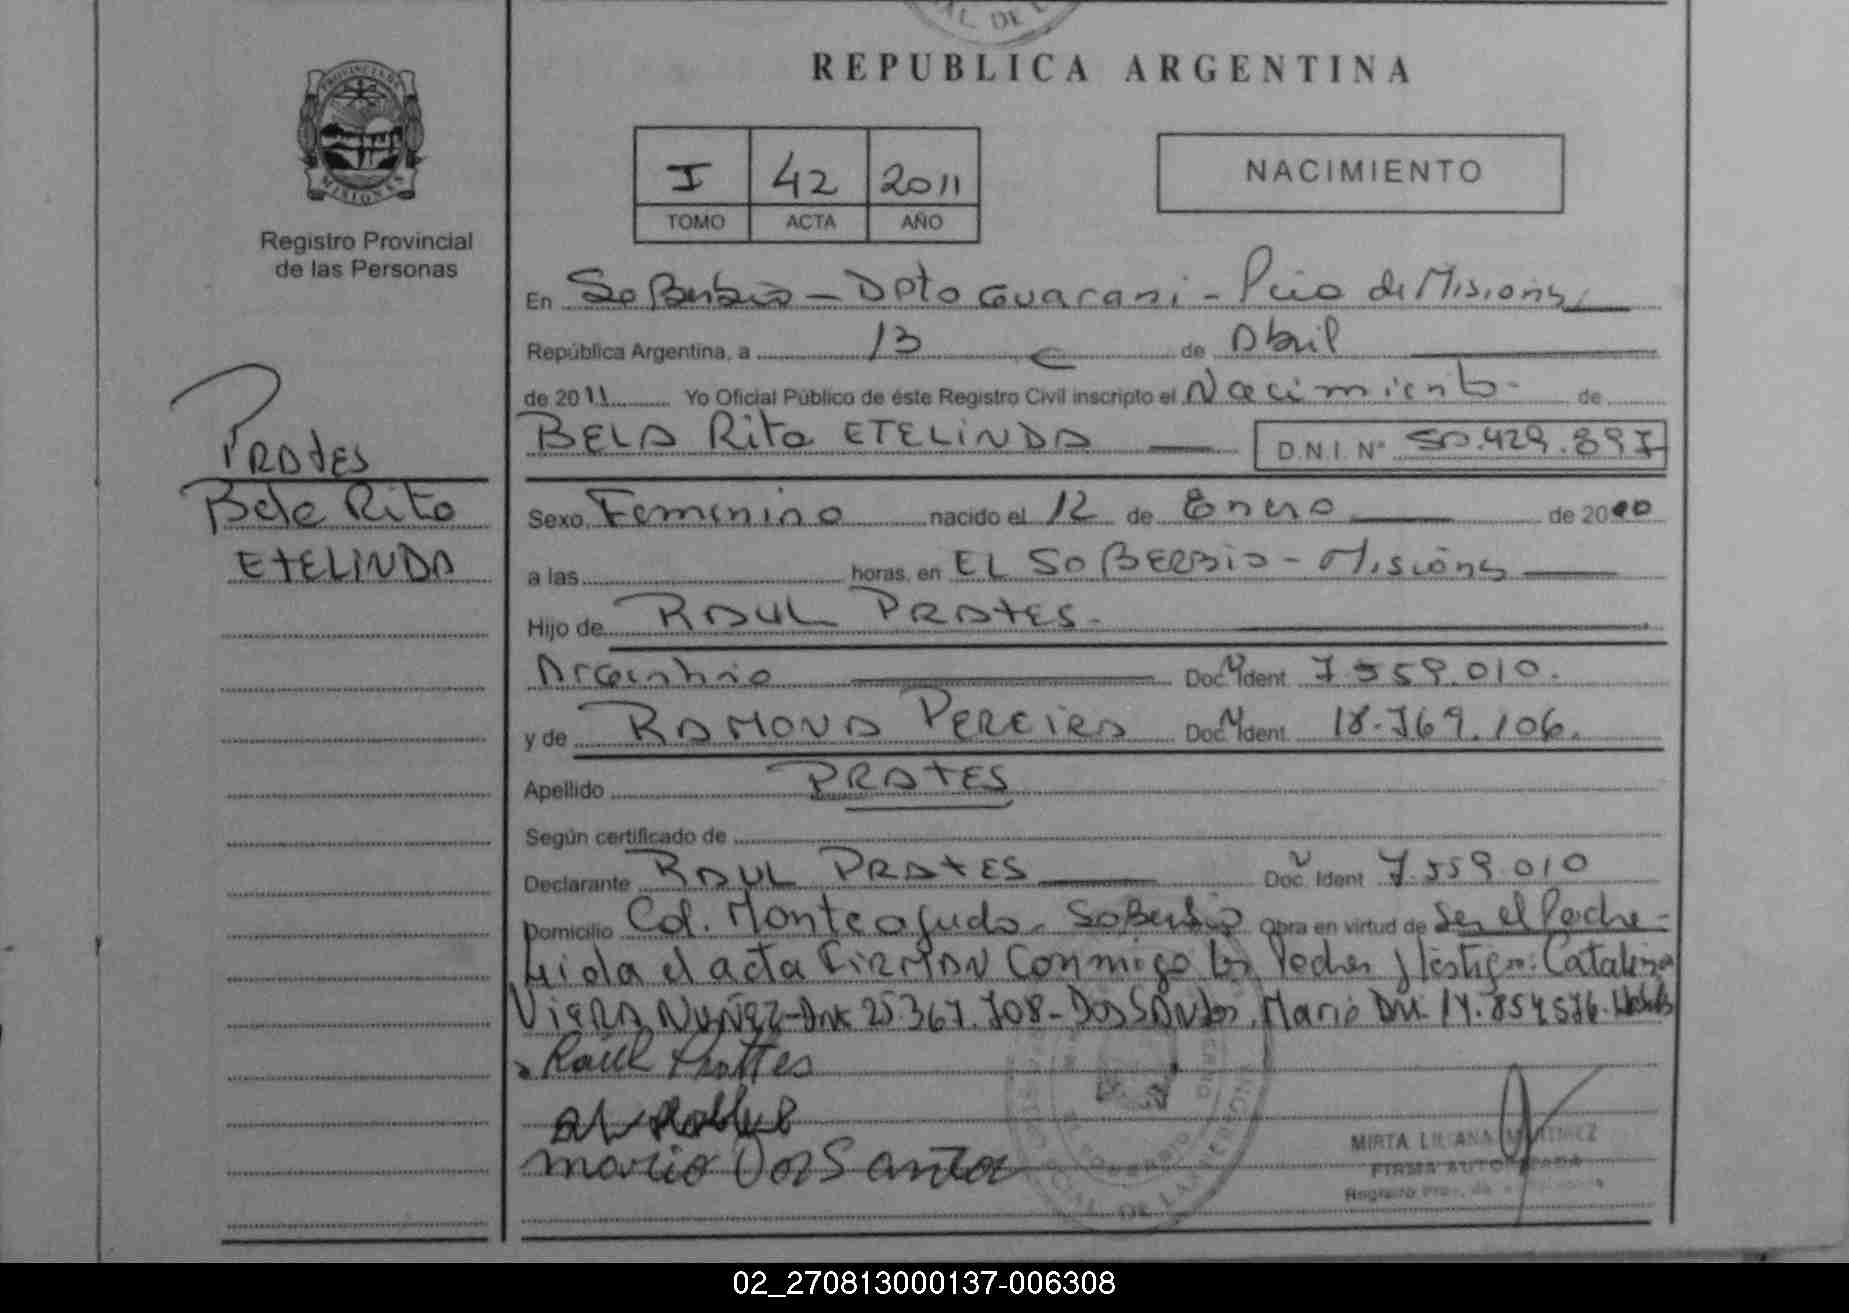 REPUBLICA ARGENTINA
PROVINCIA DE
MISIONES
Registro Provincial
de las Personas
I 42 2011
TOMO ACTA AÑO
NACIMIENTO
En Soberbio - Dpto Guarani - Pcia de Misiones
República Argentina, a 13 de Abril
de 2011 Yo Oficial Público de éste Registro Civil inscripto el Nacimiento de
BELA Rita ETELINDA D.N.I. Nº 50.429.897
PRATES
Bela Rita
ETELINDA
Sexo Femenino nacido el 12 de Enero de 2010
a las horas, en EL SOBERBIO - Misiones
Hijo de RAUL PRATES.
Argentino Doc. Ident. 7.559.010.
y de RAMONA PEREIRA Doc. Ident. 18.769.106.
Apellido PRATES
Según certificado de
Declarante RAUL PRATES Doc. Ident 7.559.010
Domicilio Col. Monteagudo - Soberbio Obra en virtud de ser el Padre -
Leida el acta FIRMAN Conmigo los Padres y testigos: Catalina
VIERA NUÑEZ - DNI 25.367.708 - DOS SANTOS, Mario DNI. 14.854.576.
Raul Prattes
mario Dos Santos
MIRTA LILIANA
FIRMA AUTORIZADA
Registro Prov. de
02_270813000137-006308